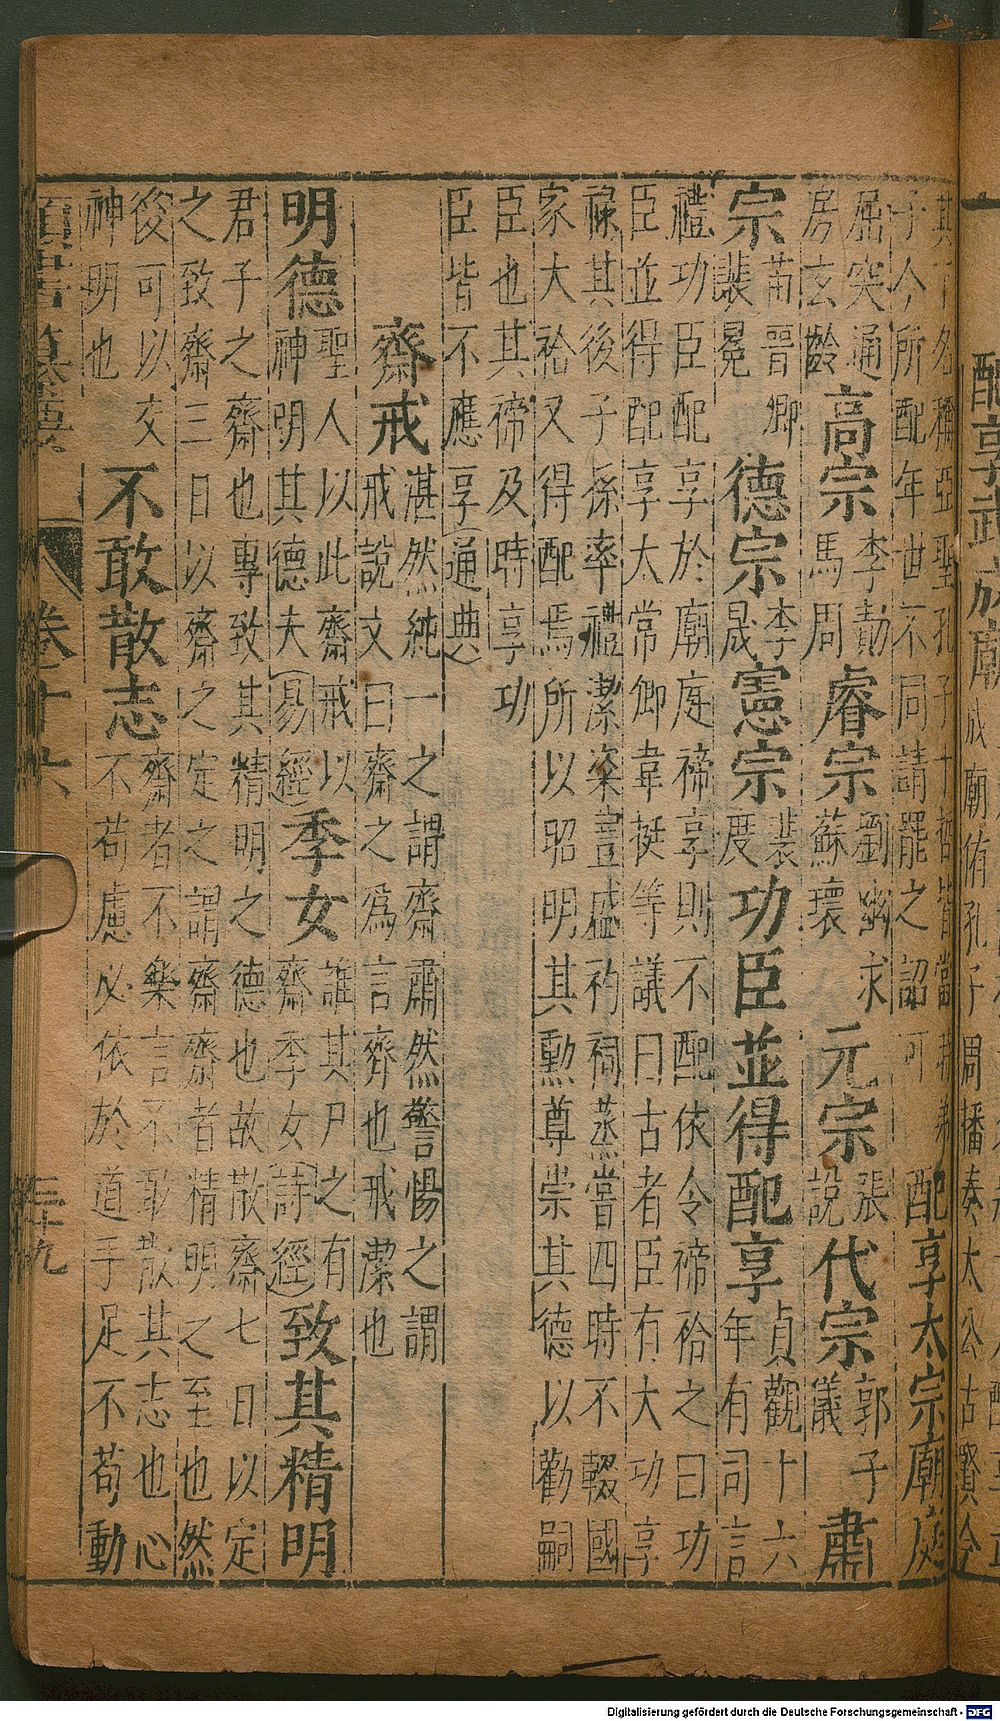 配享武成廟
子今所配年世不同請罷之詔可
配享太宗廟庭
屈突通
房玄齡
高宗
李勣
馬周
睿宗
劉幽求
蘇瓌
元宗
張
說
代宗
郭子
儀
肅
宗
苗晉卿
裴冕
德宗
李
晟
憲宗
裴
度
功臣並得配享
貞觀十六
年有司言
禮功臣配享於廟庭禘享則不配依令禘祫之日功
臣並得配享太常卿韋挺等議曰古者臣有大功享
祿其後子孫率禮潔粢豐盛礿祠蒸嘗四時不輟國
家大祫又得配焉所以昭明其勳尊崇其德以勸嗣
臣也其禘及時享功
臣皆不應享(通典)
齋戒
湛然純一之謂齋肅然警惕之謂
戒說文曰齋之為言齊也戒潔也
明德
聖人以此齋戒以
神明其德夫(易經)
季女
誰其尸之有
齋季女(詩經)
致其精明
君子之齋也專致其精明之德也故散齋七日以定
之致齋三日以齋之定之謂齋齋者精明之至也然
後可以交
神明也
不敢散志
齋者不樂言不敢散其志也心
不苟慮必依於道手足不苟動
類書纂要
卷十六
三十九
Digitalisierung gefördert durch die Deutsche Forschungsgemeinschaft - DFG